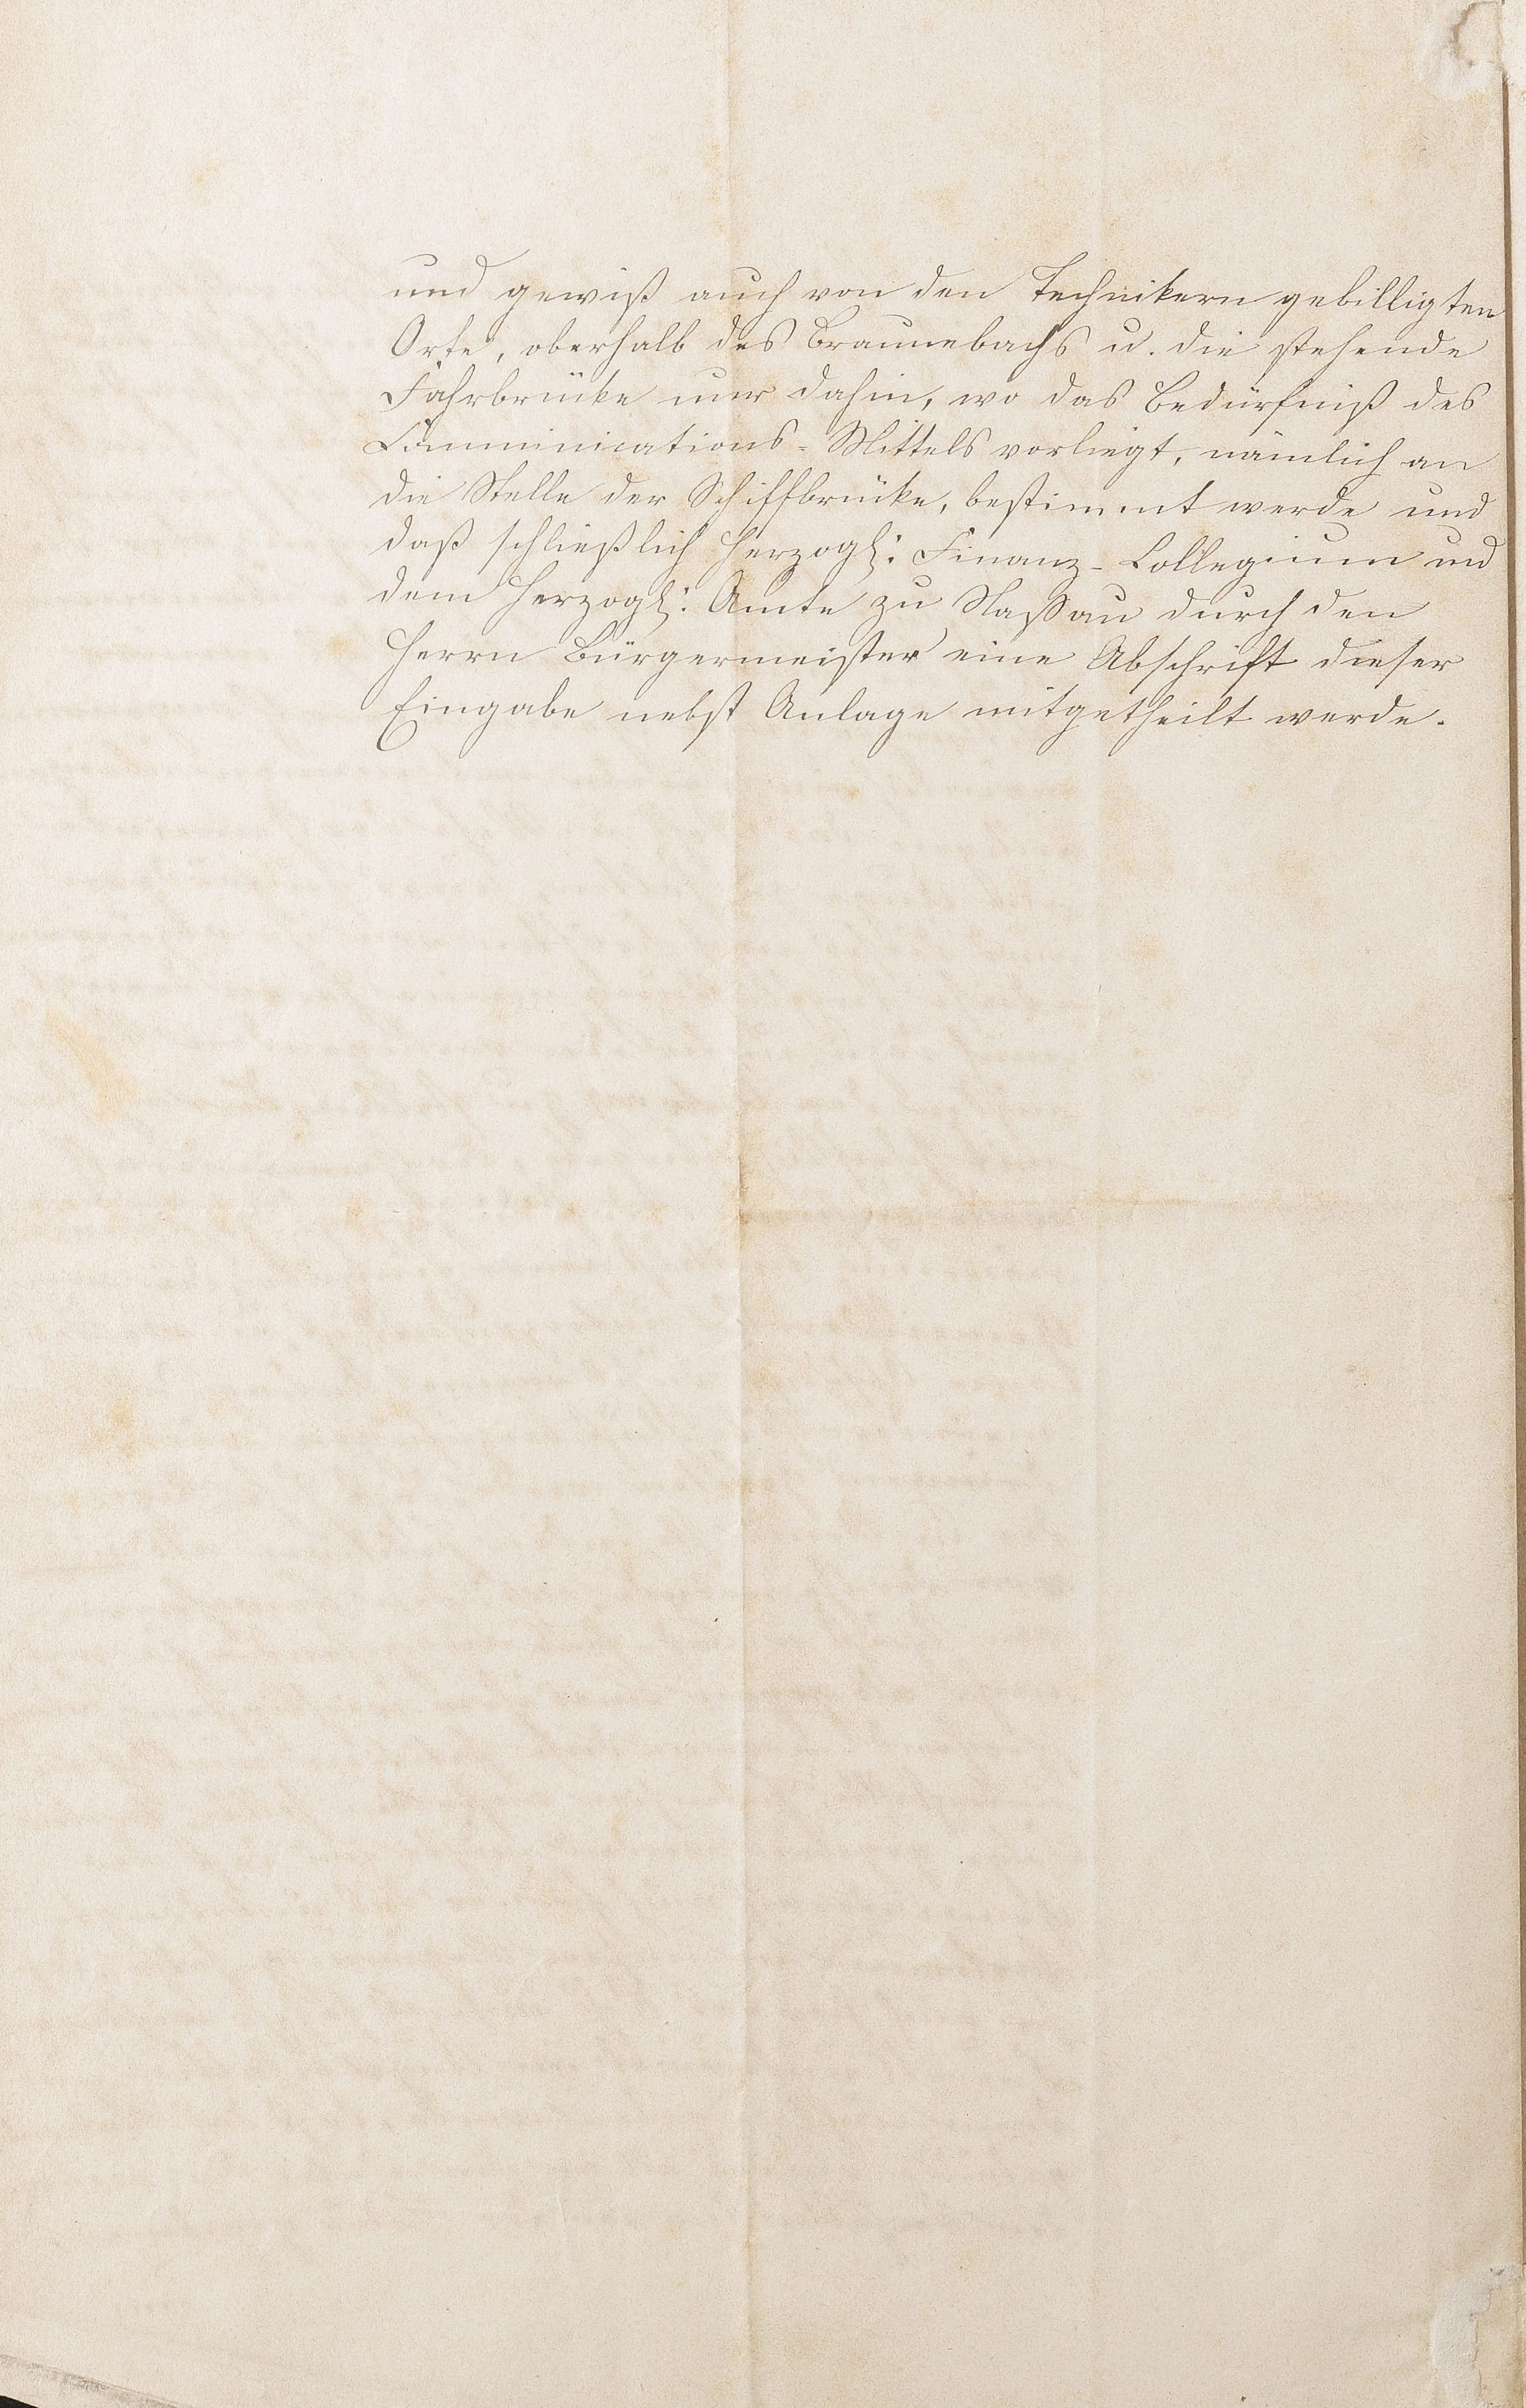 und gewiß auch von den Technikern gebilligten
Orte, oberhalb des Braunebachs u. die stehende
Fahrbrücke nur dahin, wo das Bedürfniß des
Communications-Mittels vorliegt, nämlich an
die Stelle der Schiffbrücke, bestimmt werde und
daß schließlich Herzogl: Finanz-Collegium und
dem Herzogl: Amte zu Nassau durch den
Herrn Bürgermeister eine Abschrift dieser
Eingabe nebst Anlage mitgetheilt werde.